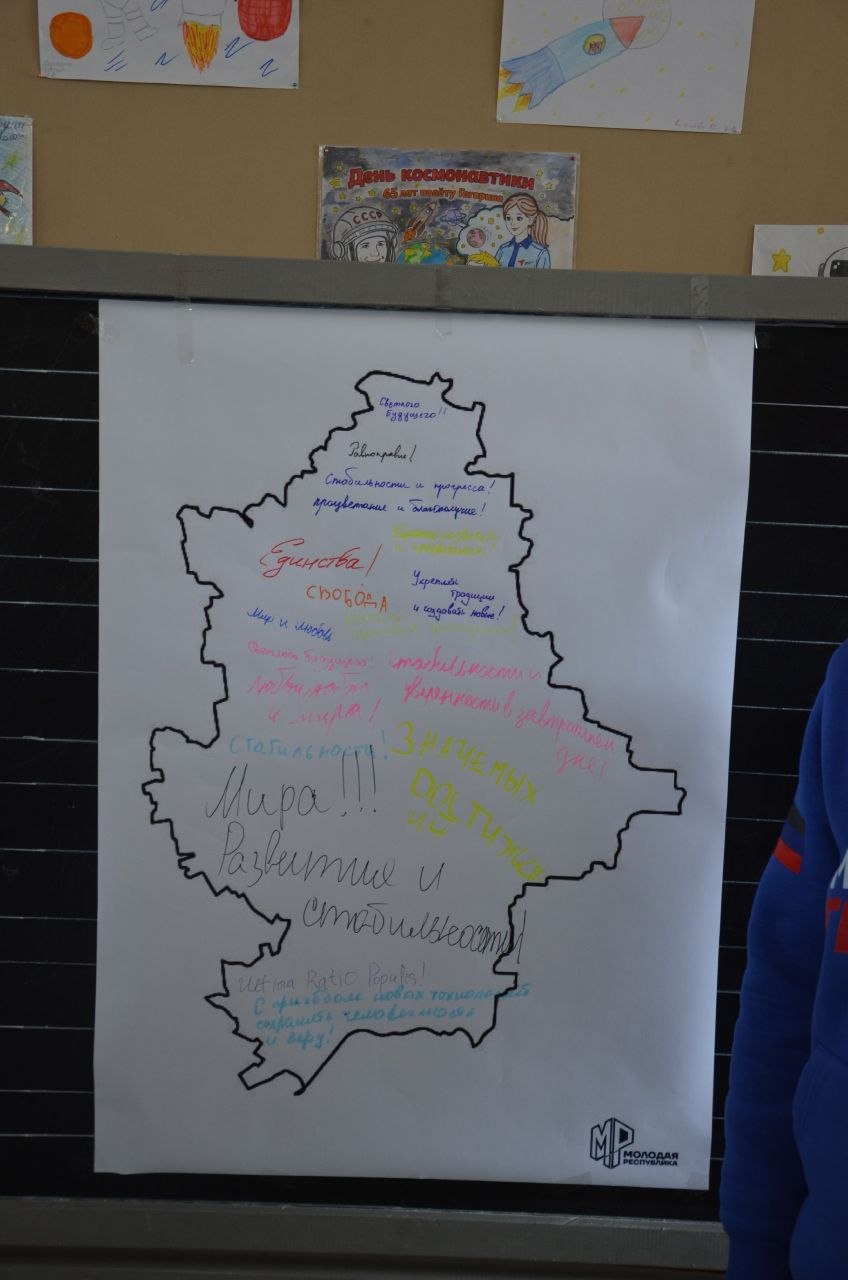 День космонавтики
65 лет полёту Гагарина
СССР
Светлого
будущего!!
Равноправие!
Стабильности и прогресса!
процветание и благополучие!
Единства!
СВОБОДА
Укреплять
традиции
и создавать новые!
Мир и любовь
будущего!
Стабильности и
уверенности в завтрашнем
дне!
и мира!
Стабильность!
ЗНАЧЕМЫХ
ДОСТИЖЕН
ИЙ
Мира!!!
Развития и
стабильности!
Ultima Ratio Populis!
С приходом новых технологий
сохранить человечность
и веру!
МР
МОЛОДАЯ
РЕСПУБЛИКА